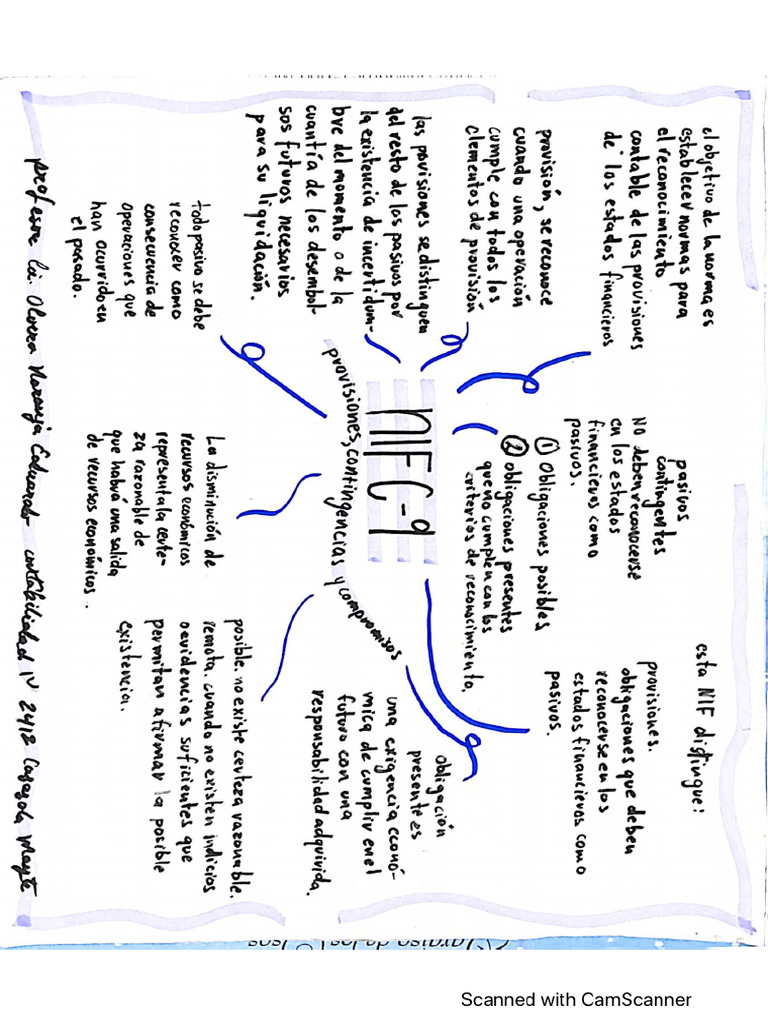 el objetivo de la norma es
establecer normas para
el reconocimiento
contable de las provisiones
de los estados financieros
provisión, se reconoce
cuando una operación
cumple con todos los
elementos de provisión
las provisiones se distinguen
del resto de los pasivos por
la existencia de incertidum-
bre del momento o de la
cuantía de los desembol-
sos futuros necesarios
para su liquidación.
todo pasivo se debe
reconocer como
consecuencia de
operaciones que
han ocurrido en
el pasado.
pasivos
contingentes
NO deben reconocerse
en los estados
financieros como
pasivos.
① Obligaciones posibles
② obligaciones presentes
que no cumplen con los
criterios de reconocimiento.
NIF C-9
provisiones, contingencias y compromisos
La disminución de
recursos económicos
representa la certe-
za razonable de
que habrá una salida
de recursos económicos.
esta NIF distingue:
provisiones.
obligaciones que deben
reconocerse en los
estados financieros como
pasivos.
obligación
presente es
una exigencia econó-
mica de cumplir en el
futuro con una
responsabilidad adquirida.
posible. no existe certeza razonable.
remota. cuando no existen indicios
o evidencias suficientes que
permitan afirmar la posible
existencia.
profesor lic. Olvera Naranja Eduardo contabilidad IV 2412 Mayte
Scanned with CamScanner